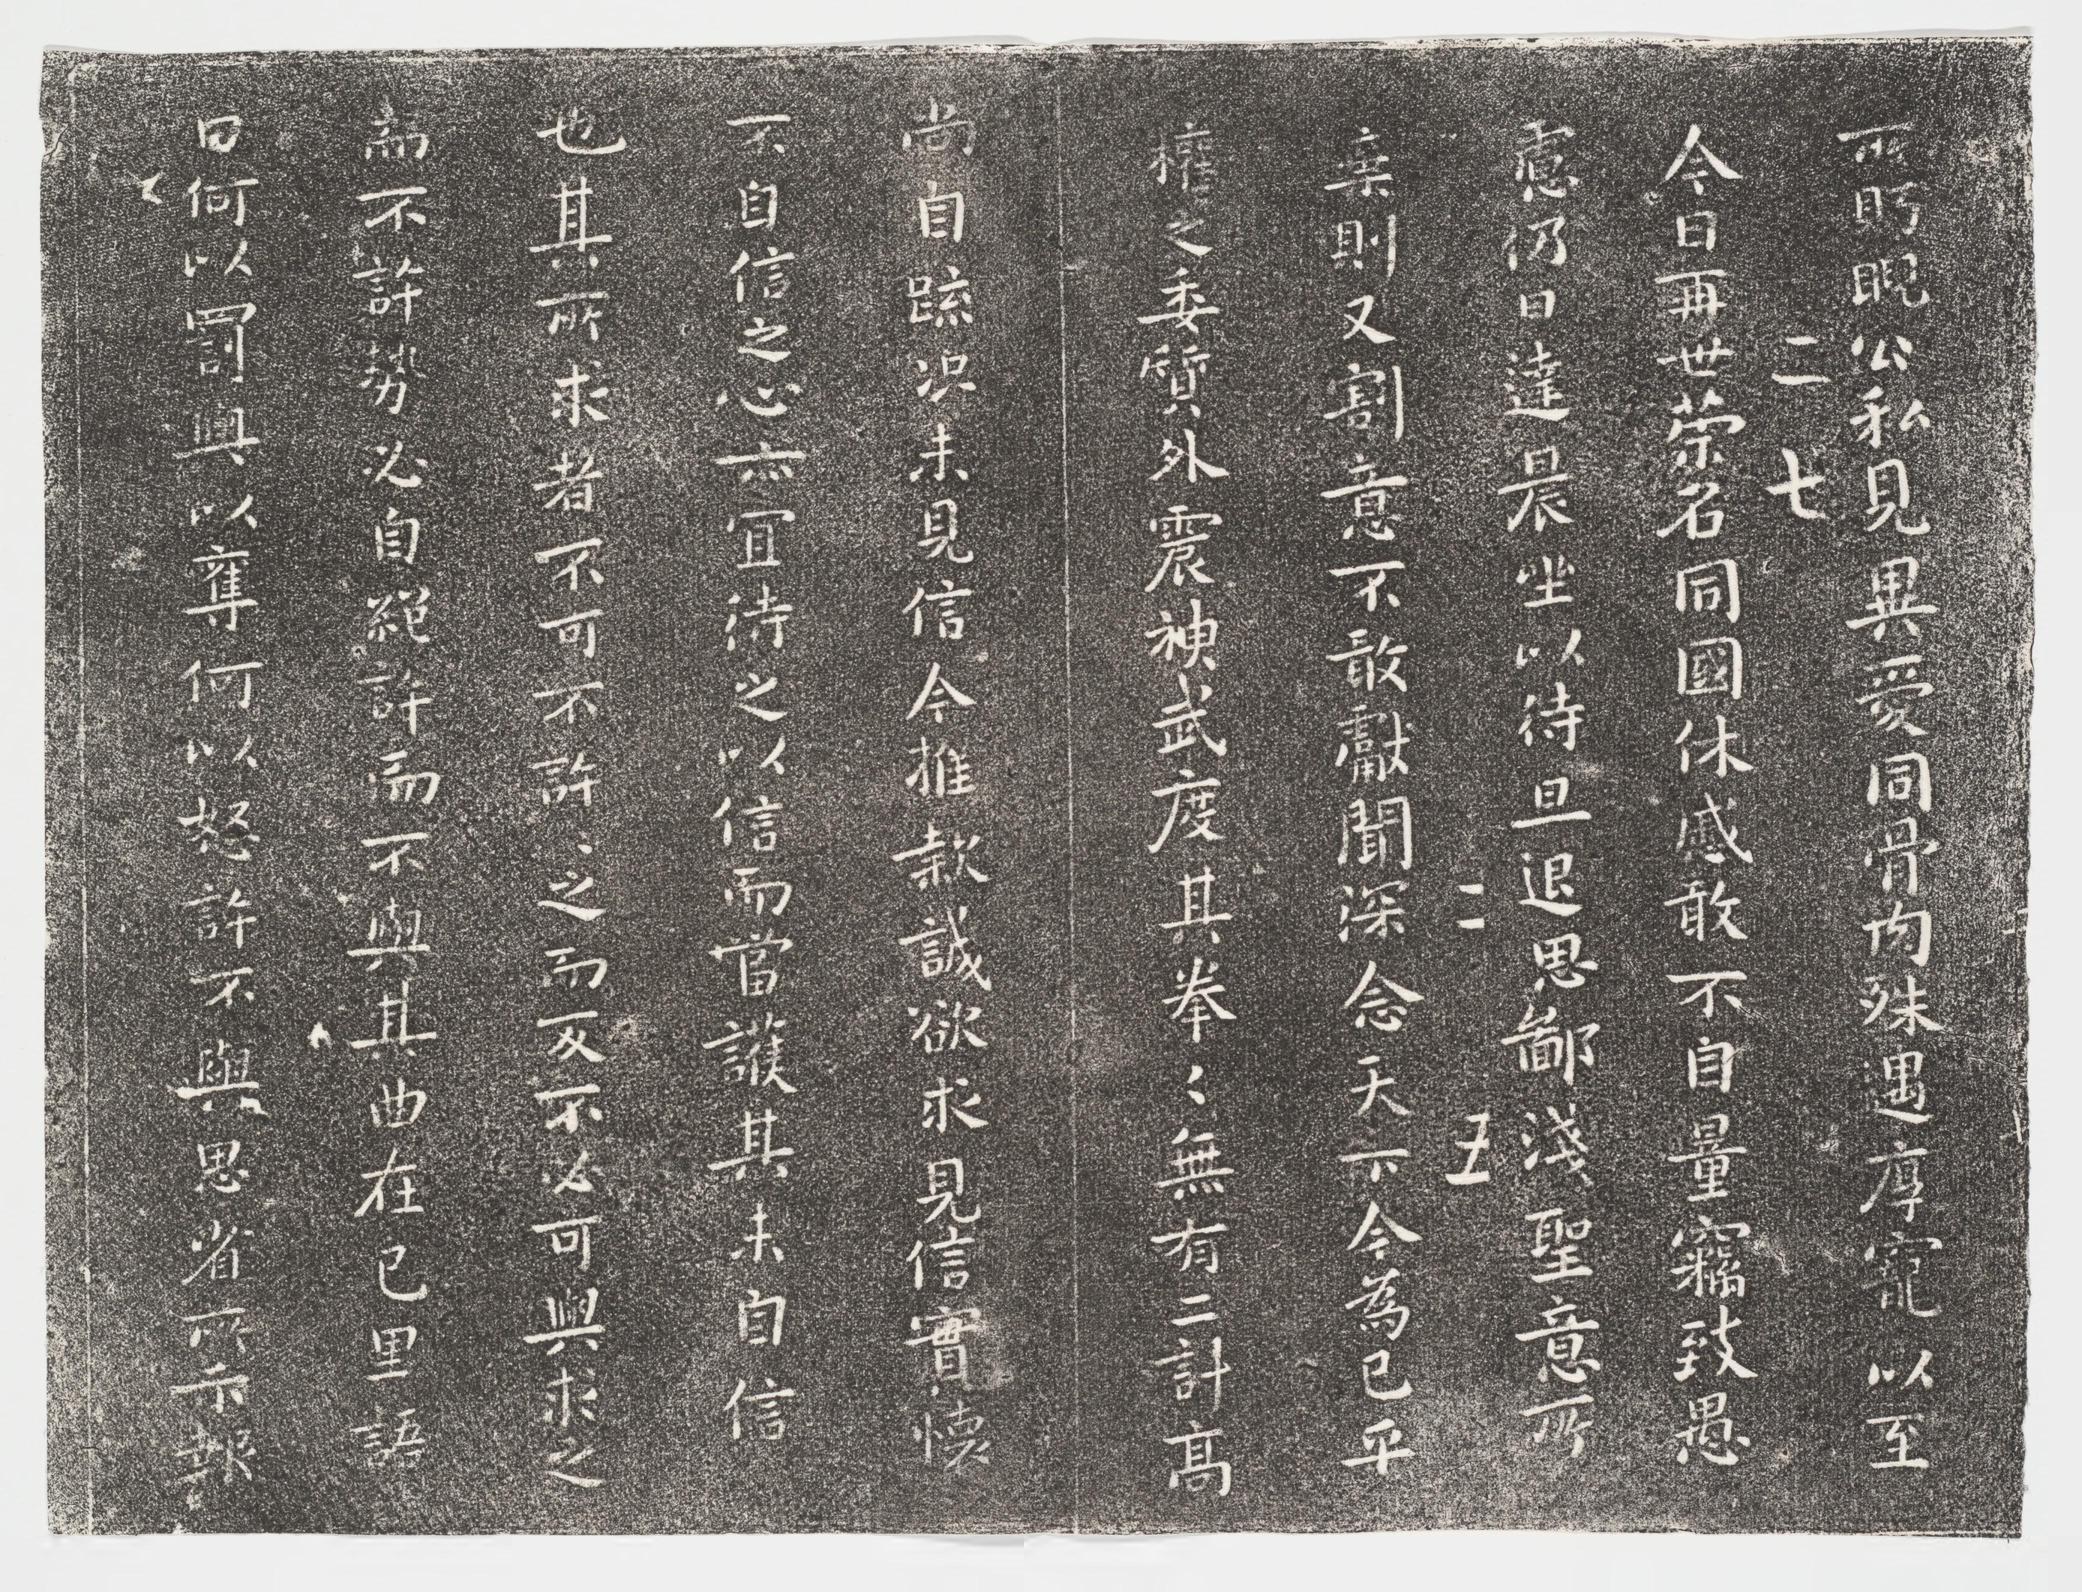 所眄睨公私見異愛同骨肉殊遇厚寵以至
二七
今日再世榮名同國休慼敢不自量竊致愚
慮仍日達晨坐以待旦退思鄙淺聖意所
二五
棄則又割意不敢獻聞深念天下今為已平
權之委質外震神武度其拳々無有二計高
尚自疏况未見信今推款誠欲求見信實懷
不自信之心亦宜待之以信而當護其未自信
也其所求者不可不許許之而反不必可與求之
而不許勢必自絕許而不與其曲在己里語
曰何以罰與以奪何以怒許不與思省所示報